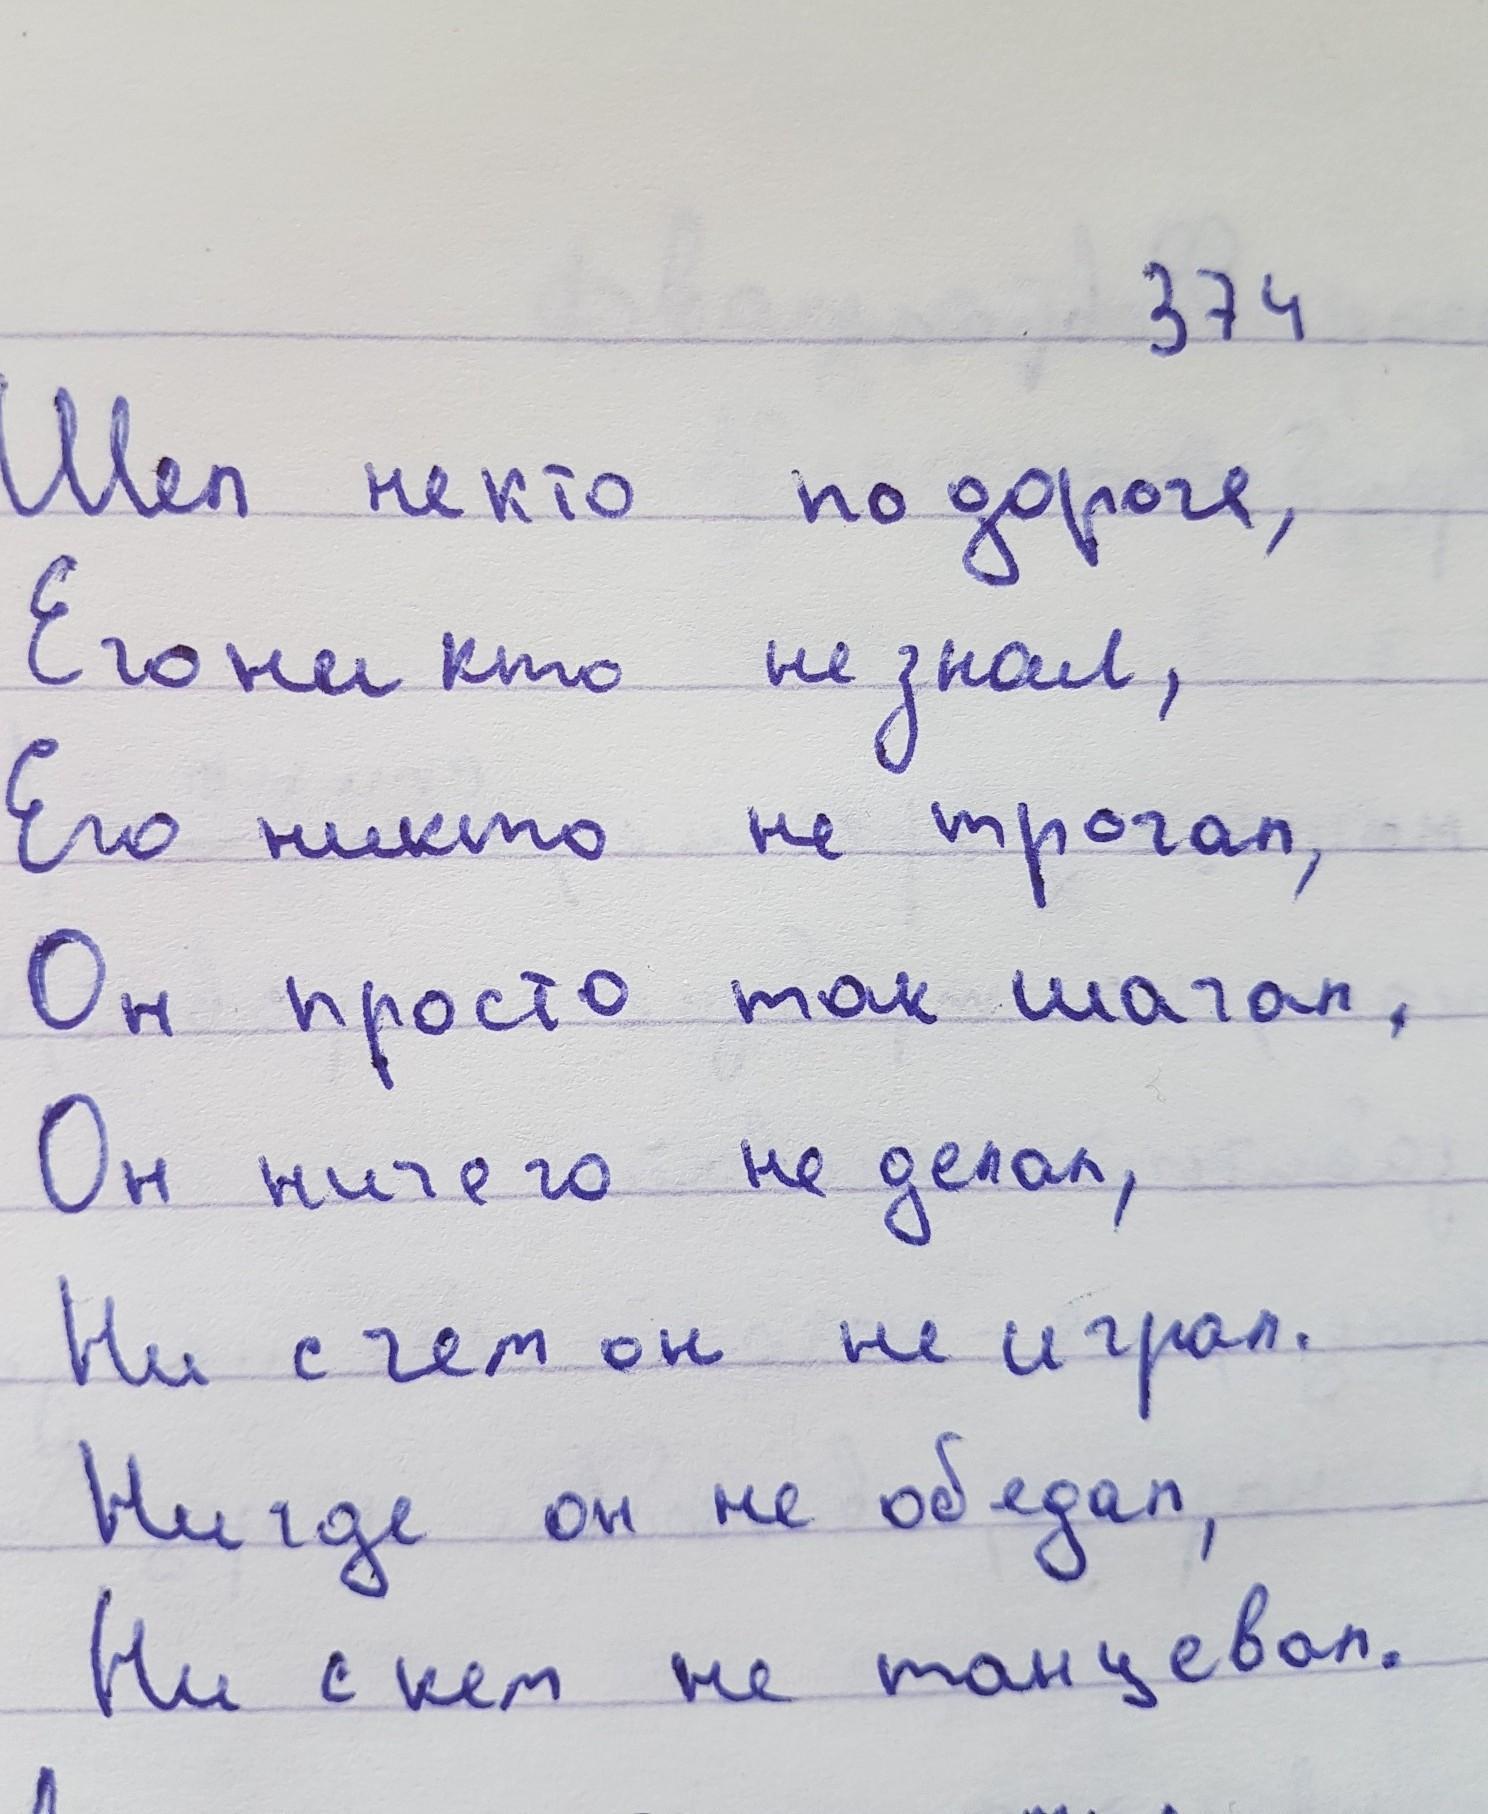 374
Шел некто по дороге,
Его никто не знал,
Его никто не трогал,
Он просто так шагал,
Он ничего не делал,
Ни с чем он не играл.
Нигде он не обедал,
Ни с кем не танцевал.